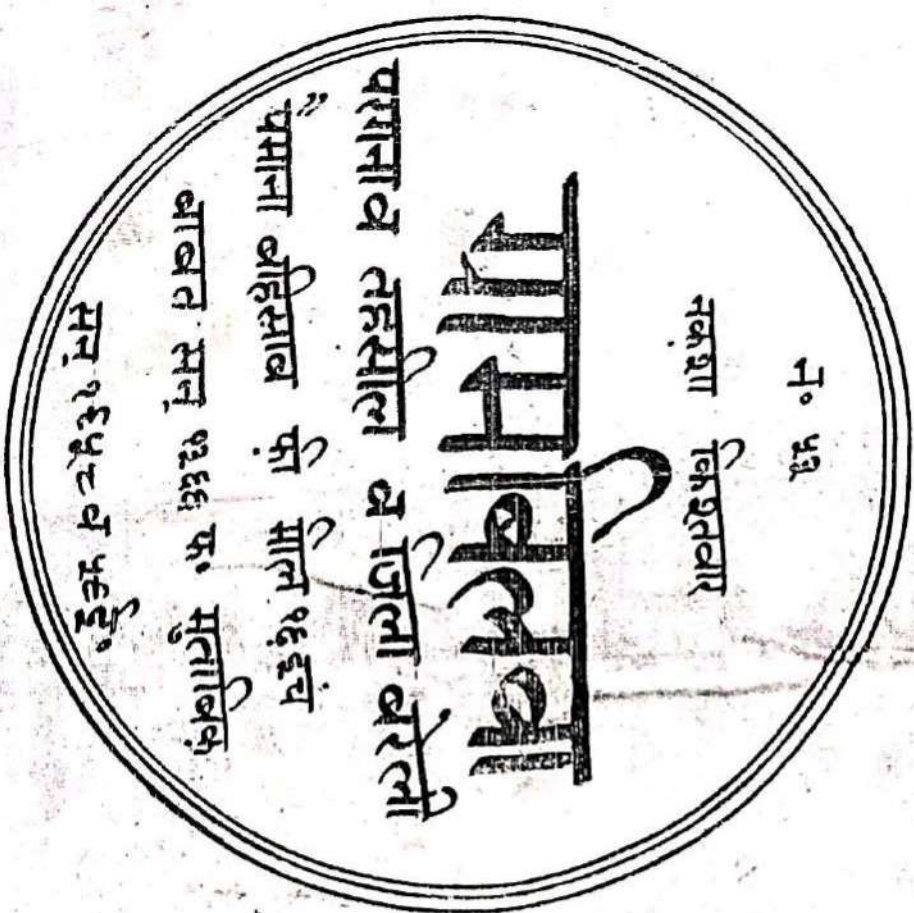 न० ५३
नक़शा किश्तवार
परगना व तहसील व ज़िला बरेली
पैमाना बहिसाब फ़ी मील १६ इंच
बाबत सन् १३६६ फ० मुताबिक़
सन् १९५८ व ५९ ई०